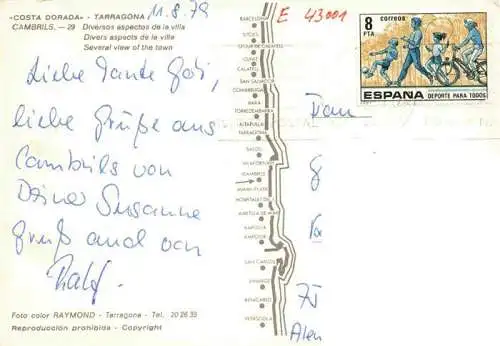 «COSTA DORADA» - TARRAGONA
11.8.79
CAMBRILS. — 29 Diversos aspectos de la villa
Divers aspects de la ville
Several view of the town
E 43001
correos
8
PTA
ESPAÑA DEPORTE PARA TODOS
Liebe Tante Gabi,
liebe Grüße aus
Cambrils von
Deiner Susanne
Gruß auch von
Ralf.
BARCELONA
SITGES
CUNIT
CALAFELL
SAN SALVADOR
COMARRUGA
BARA
TORREDEMBARRA
ALTAFULLA
TARRAGONA
SALOU
VILAFORTUNY
CAMBRILS
MIAMI-PLAYA
HOSPITALET
AMETLLA DE MAR
AMPOLLA
AMPOSTA
SAN CARLOS
VINAROZ
BENICARLO
PEÑISCOLA
Foto color RAYMOND - Tarragona - Tel. 20 26 35
Reproducción prohibida - Copyright